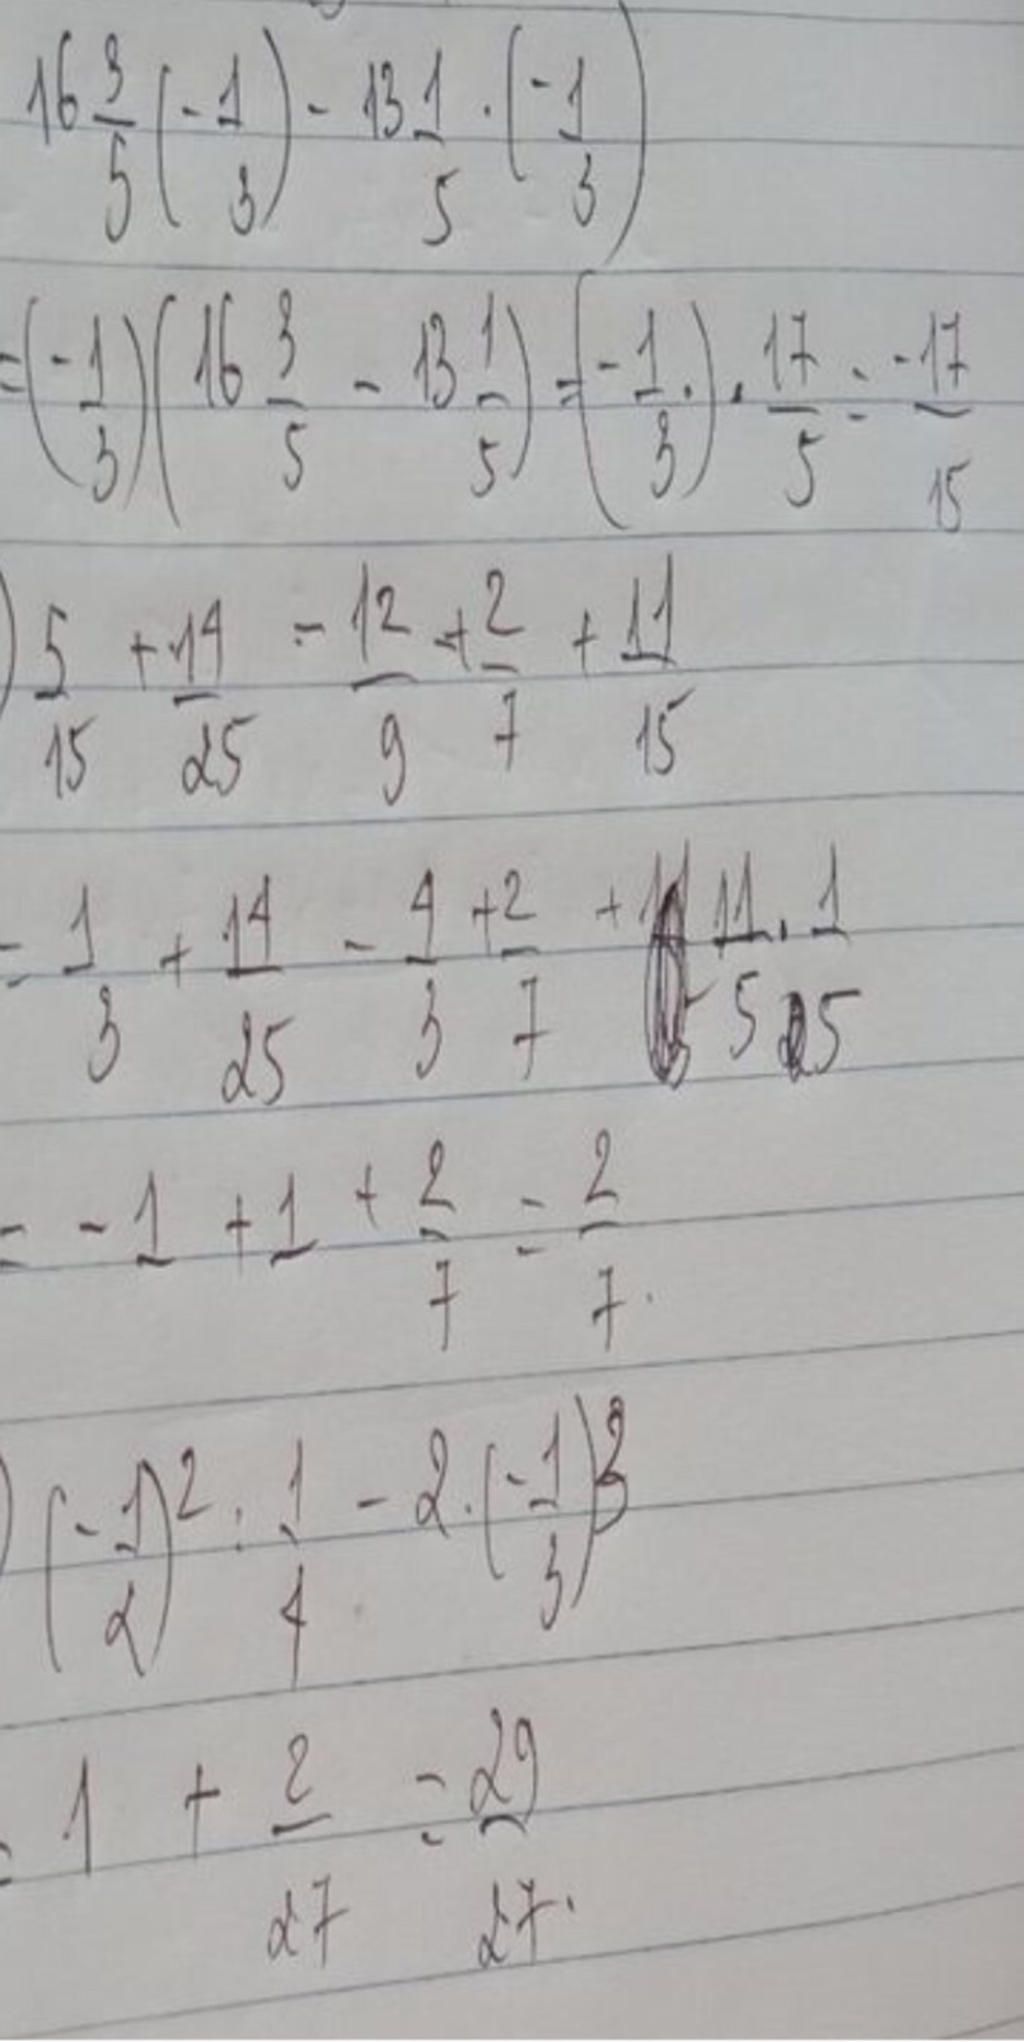 16 3/5 (-1/3) - 13 1/5 . (-1/3)
= (-1/3) (16 3/5 - 13 1/5) = (-1/3.) . 17/5 = -17/15
) 5/15 + 14/25 - 12/9 + 2/7 + 11/15
= 1/3 + 14/25 - 4/3 + 2/7 + 11/5 . 1/5
= -1 + 1 + 2/7 = 2/7.
) (-1/2)² : 1/4 - 2 . (-1/3)³
= 1 + 2/27 = 29/27.